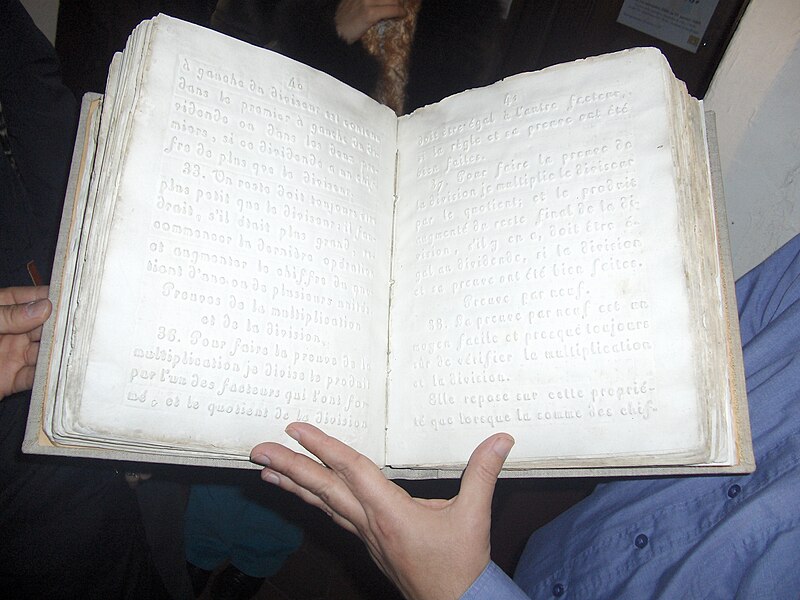 40
à gauche du diviseur est contenu
dans le premier à gauche du di-
vidende ou dans les deux pre-
miers, si ce dividende a un chif-
fre de plus que le diviseur.
33. Un reste doit toujours être
plus petit que le diviseur; il fau-
drait, s'il était plus grand, re-
commencer la dernière opération
et augmenter le chiffre du quo-
tient d'une ou de plusieurs unités.
Preuves de la multiplication
et de la division.
36. Pour faire la preuve de la
multiplication je divise le produit
par l'un des facteurs qui l'ont for-
mé, et le quotient de la division
41
doit être égal à l'autre facteur,
si la règle et sa preuve ont été
bien faites.
37. Pour faire la preuve de
la division je multiplie le diviseur
par le quotient; et le produit
augmenté du reste final de la di-
vision, s'il y en a, doit être é-
gal au dividende, si la division
et sa preuve ont été bien faites.
Preuve par neuf.
38. La preuve par neuf est un
moyen facile et presque toujours
sûr de vérifier la multiplication
et la division.
Elle repose sur cette proprié-
té que lorsque la somme des chif-